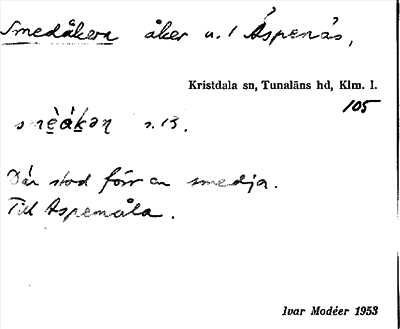 Smedåkern åker u. / Äspenäs,
Kristdala sn, Tunaläns hd, Klm. l.
105
s. 13.
Där stod förr en smedja.
Till Aspemåla.
Ivar Modéer 1953